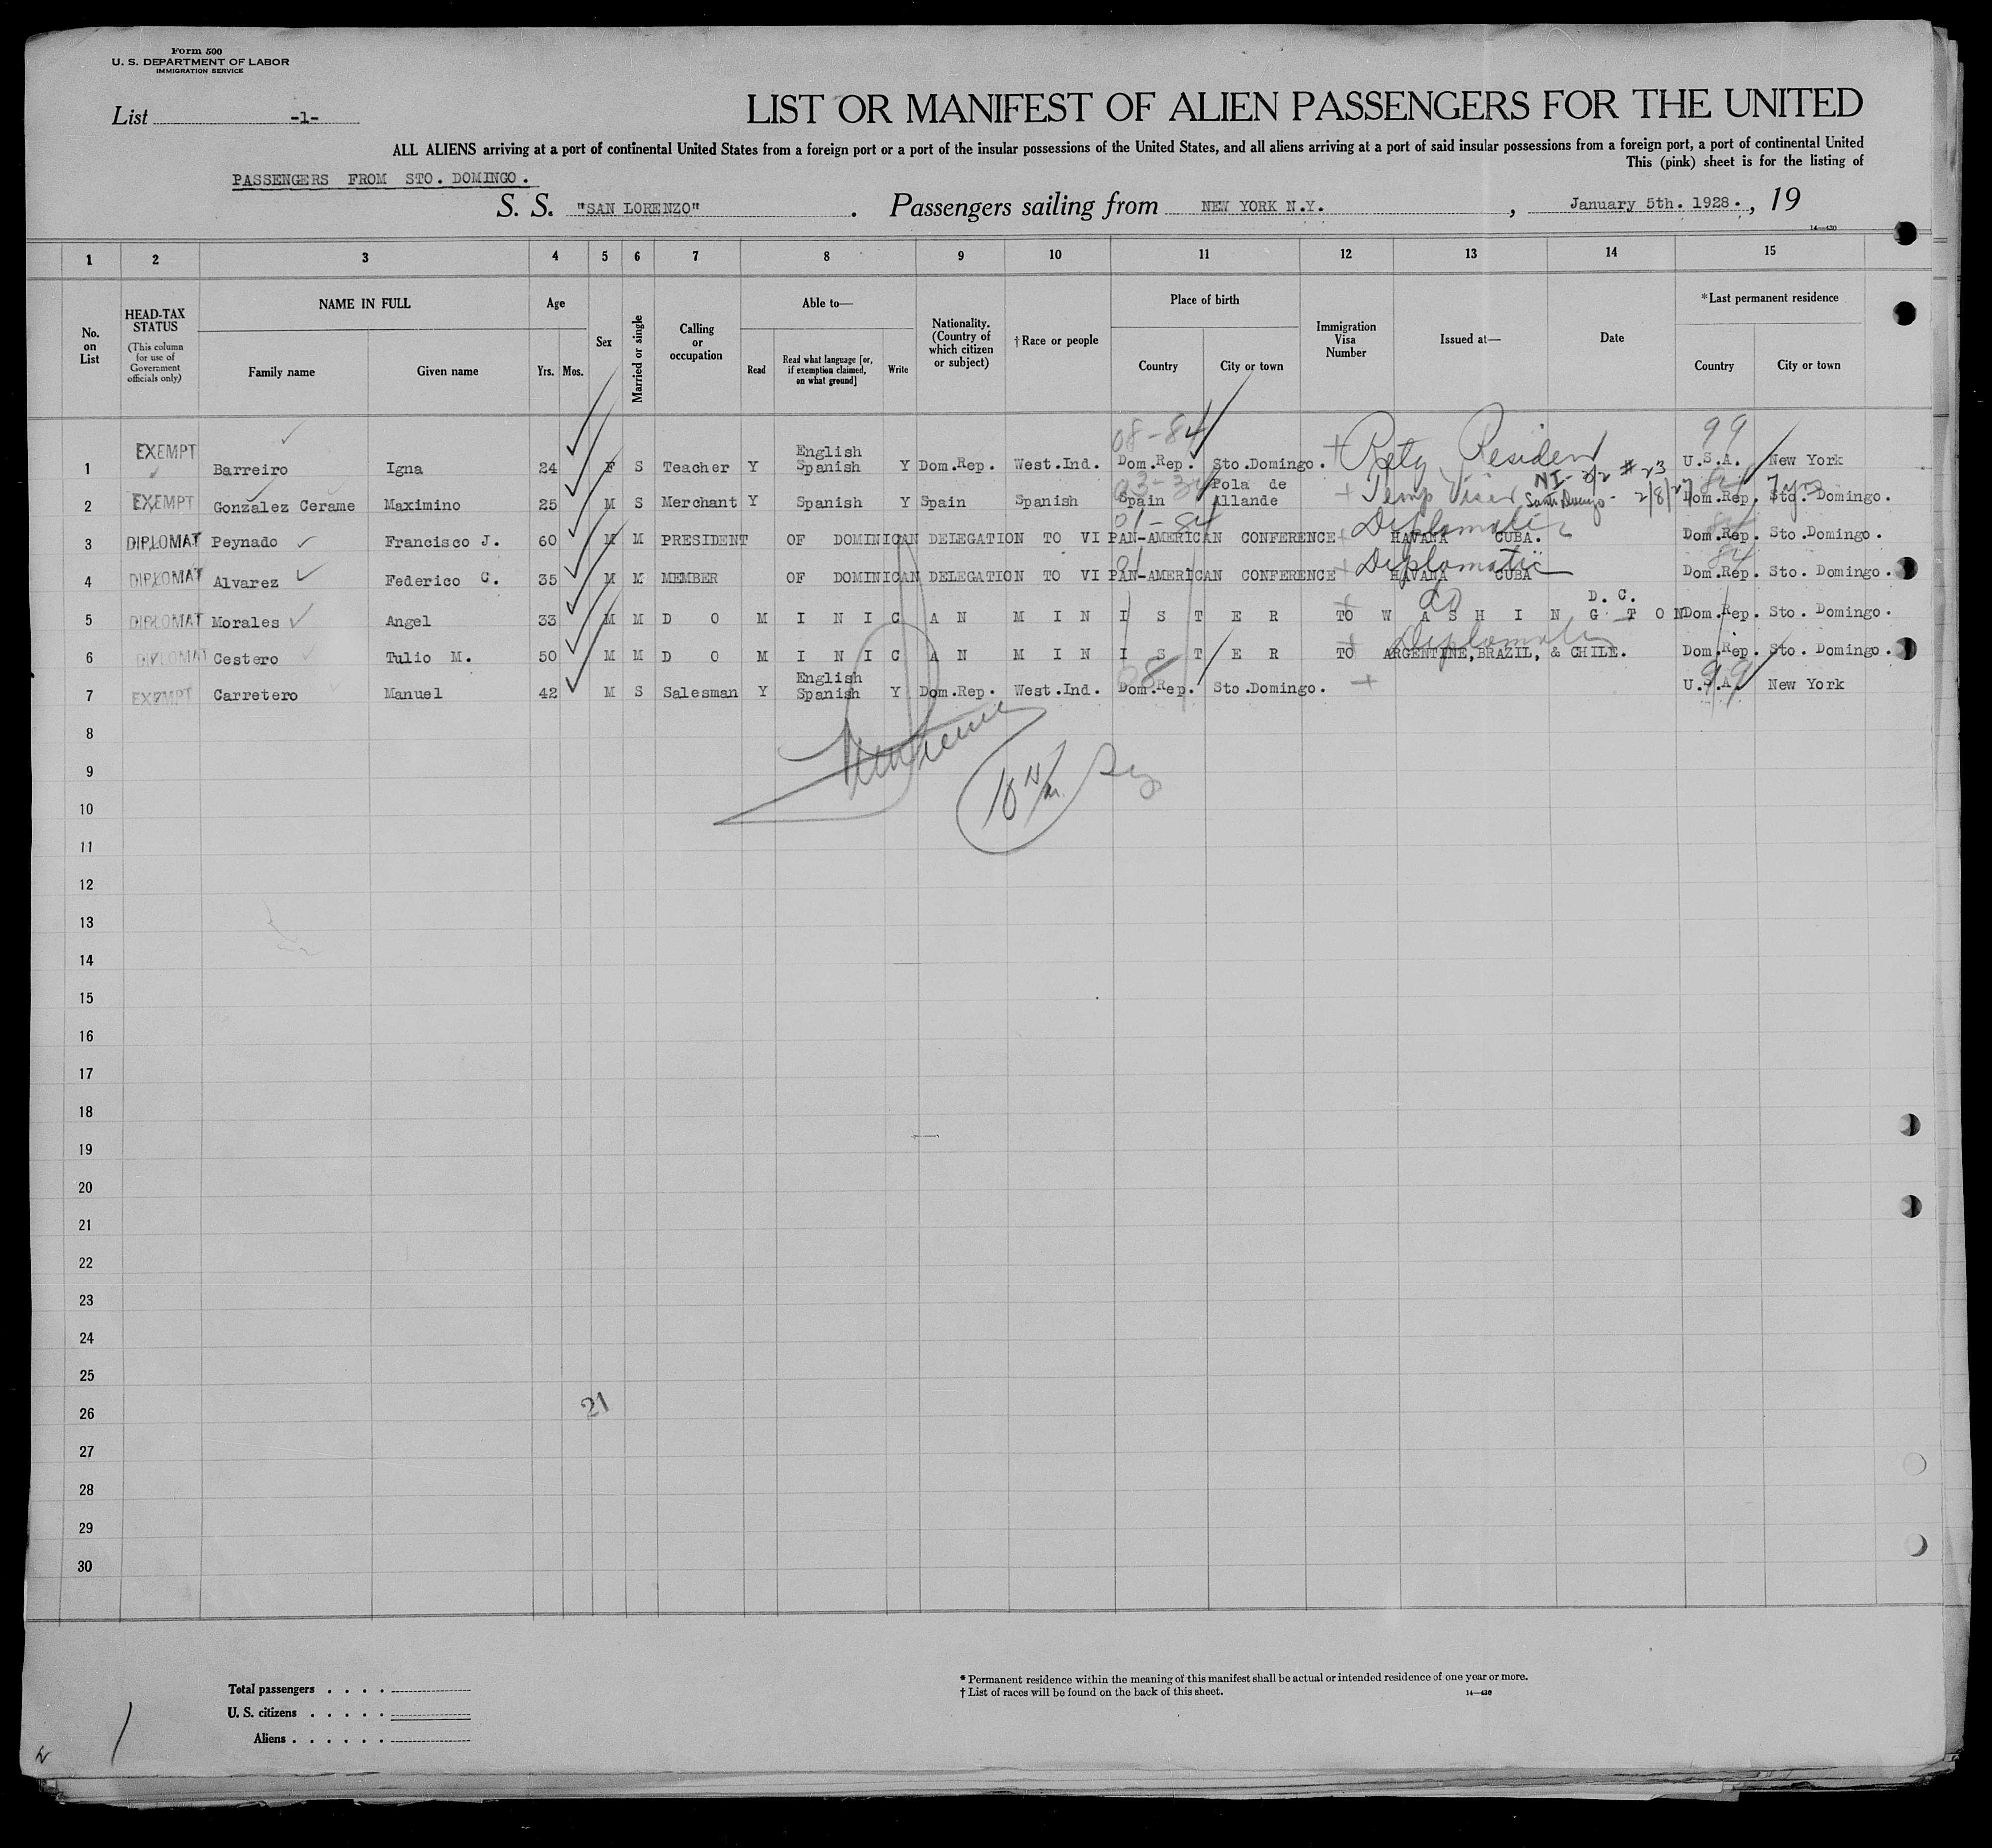 Form 500
U. S. DEPARTMENT OF LABOR
IMMIGRATION SERVICE
List -1-
LIST OR MANIFEST OF ALIEN PASSENGERS FOR THE UNITED
ALL ALIENS arriving at a port of continental United States from a foreign port or a port of the insular possessions of the United States, and all aliens arriving at a port of said insular possessions from a foreign port, a port of continental United
This (pink) sheet is for the listing of
PASSENGERS FROM STO. DOMINGO.
S. S. "SAN LORENZO" . Passengers sailing from NEW YORK N.Y. , January 5th. 1928. , 19
14—430
1 2 3 4 5 6 7 8 9 10 11 12 13 14 15
No. on List
HEAD-TAX STATUS
(This column for use of Government officials only)
NAME IN FULL
Family name Given name
Age
Yrs. Mos.
Sex
Married or single
Calling or occupation
Able to—
Read
Read what language [or, if exemption claimed, on what ground]
Write
Nationality. (Country of which citizen or subject)
† Race or people
Place of birth
Country City or town
Immigration Visa Number
Issued at—
Date
*Last permanent residence
Country City or town
08-84 99
1 EXEMPT Barreiro Igna 24 F S Teacher Y English Spanish Y Dom.Rep. West.Ind. Dom.Rep. Sto.Domingo. Resident U.S.A. New York
2 EXEMPT Gonzalez Cerame Maximino 25 M S Merchant Y Spanish Y Spain Spanish Spain Pola de Allande Temp Visa NI- 3/2 #23 Santo Domingo - 2/8/27 Dom.Rep. Sto. Domingo. 7 yrs
3 DIPLOMAT Peynado Francisco J. 60 M M PRESIDENT OF DOMINICAN DELEGATION TO VI PAN-AMERICAN CONFERENCE HAVANA CUBA. Diplomatic Dom.Rep. Sto.Domingo.
4 DIPLOMAT Alvarez Federico C. 35 M M MEMBER OF DOMINICAN DELEGATION TO VI PAN-AMERICAN CONFERENCE HAVANA CUBA Diplomatic Dom.Rep. Sto. Domingo.
5 DIPLOMAT Morales Angel 33 M M DOMINICAN MINISTER TO WASHINGTON D. C. do Dom.Rep. Sto. Domingo.
6 DIPLOMAT Cestero Tulio M. 50 M M DOMINICAN MINISTER TO ARGENTINE,BRAZIL, & CHILE. Diplomatic Dom.Rep. Sto. Domingo.
7 EXEMPT Carretero Manuel 42 M S Salesman Y English Spanish Y Dom.Rep. West.Ind. Dom.Rep. Sto.Domingo. U.S.A. New York
8
9
10
11
12
13
14
15
16
17
18
19
20
21
22
23
24
25
26 21
27
28
29
30
Total passengers
U. S. citizens
Aliens
* Permanent residence within the meaning of this manifest shall be actual or intended residence of one year or more.
† List of races will be found on the back of this sheet.
14—430